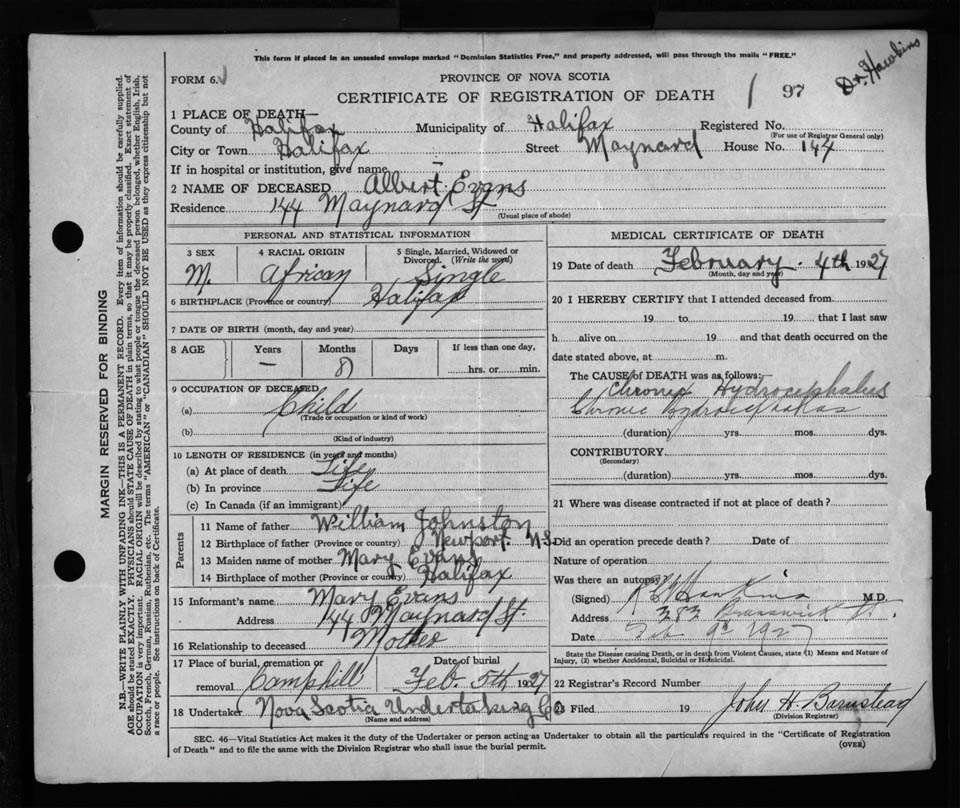 This form if placed in an unsealed envelope marked "Dominion Statistics Free," and properly addressed, will pass through the mails "FREE."
Dr. Hawkins
FORM 6.
PROVINCE OF NOVA SCOTIA
CERTIFICATE OF REGISTRATION OF DEATH
97
1 PLACE OF DEATH—
County of Halifax Municipality of Halifax Registered No.
(For use of Registrar General only)
City or Town Halifax Street Maynard House No. 144
If in hospital or institution, give name —
2 NAME OF DECEASED Albert Evans
Residence 144 Maynard St
(Usual place of abode)
PERSONAL AND STATISTICAL INFORMATION
3 SEX 4 RACIAL ORIGIN 5 Single, Married, Widowed or Divorced. (Write the word)
M. African Single
6 BIRTHPLACE (Province or country) Halifax
7 DATE OF BIRTH (month, day and year)
8 AGE Years Months Days If less than one day,
— 8 hrs. or min.
9 OCCUPATION OF DECEASED
(a) Child
(Trade or occupation or kind of work)
(b)
(Kind of industry)
10 LENGTH OF RESIDENCE (in years and months)
(a) At place of death Life
(b) In province Life
(c) In Canada (if an immigrant)
Parents
11 Name of father William Johnston
12 Birthplace of father (Province or country) Newport N.S
13 Maiden name of mother Mary Evans
14 Birthplace of mother (Province or country) Halifax
15 Informant's name Mary Evans
Address 144 Maynard St.
16 Relationship to deceased Mother
17 Place of burial, cremation or removal Camphill Date of burial Feb. 5th 1927
18 Undertaker Nova Scotia Undertaking Co
(Name and address)
MEDICAL CERTIFICATE OF DEATH
19 Date of death February 4th 1927
(Month, day and year)
20 I HEREBY CERTIFY that I attended deceased from
19 to 19 that I last saw
h alive on 19 and that death occurred on the
date stated above, at m.
The CAUSE of DEATH was as follows:—
Chronic Hydrocephalus
Chronic Hydrocephalas
(duration) yrs. mos. dys.
CONTRIBUTORY
(Secondary)
(duration) yrs. mos. dys.
21 Where was disease contracted if not at place of death?
Did an operation precede death? Date of
Nature of operation
Was there an autopsy?
(Signed) Hawkins M.D.
Address 282 Brunswick St.
Date Feb 9th 1927
State the Disease causing Death, or in death from Violent Causes, state (1) Means and Nature of
Injury, (2) whether Accidental, Suicidal or Homicidal.
22 Registrar's Record Number
23 Filed 19 John H. Barnstead
(Division Registrar)
SEC. 46—Vital Statistics Act makes it the duty of the Undertaker or person acting as Undertaker to obtain all the particulars required in the "Certificate of Registration
of Death" and to file the same with the Division Registrar who shall issue the burial permit.
(OVER)
MARGIN RESERVED FOR BINDING
N.B.—WRITE PLAINLY WITH UNFADING INK—THIS IS A PERMANENT RECORD. Every item of information should be carefully supplied.
AGE should be stated EXACTLY. PHYSICIANS should STATE CAUSE OF DEATH in plain terms, so that it may be properly classified. Exact statement of
OCCUPATION is very important. RACIAL ORIGIN will be described by stating to what people or tongue the deceased person belonged, whether English, Irish,
Scotch, French, German, Russian, Ruthenian, etc. The terms "AMERICAN" or "CANADIAN" SHOULD NOT BE USED as they express citizenship but not
a race or people. See instructions on back of Certificate.